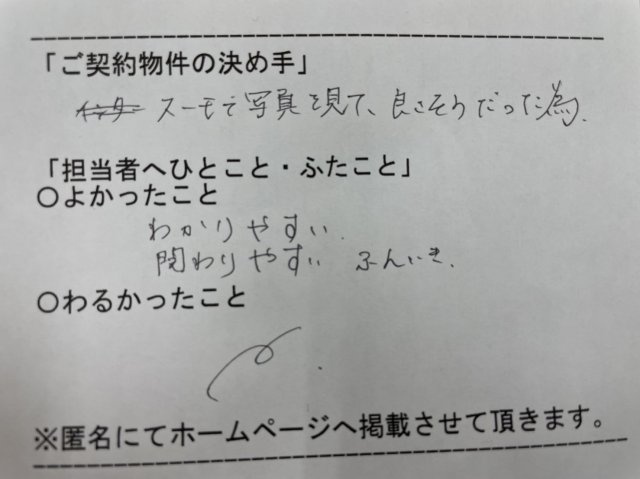 「ご契約物件の決め手」
スーモで写真を見て、良さそうだった為.
「担当者へひとこと・ふたこと」
○よかったこと
わかりやすい.
関わりやすい ふんいき.
○わるかったこと
※匿名にてホームページへ掲載させて頂きます。